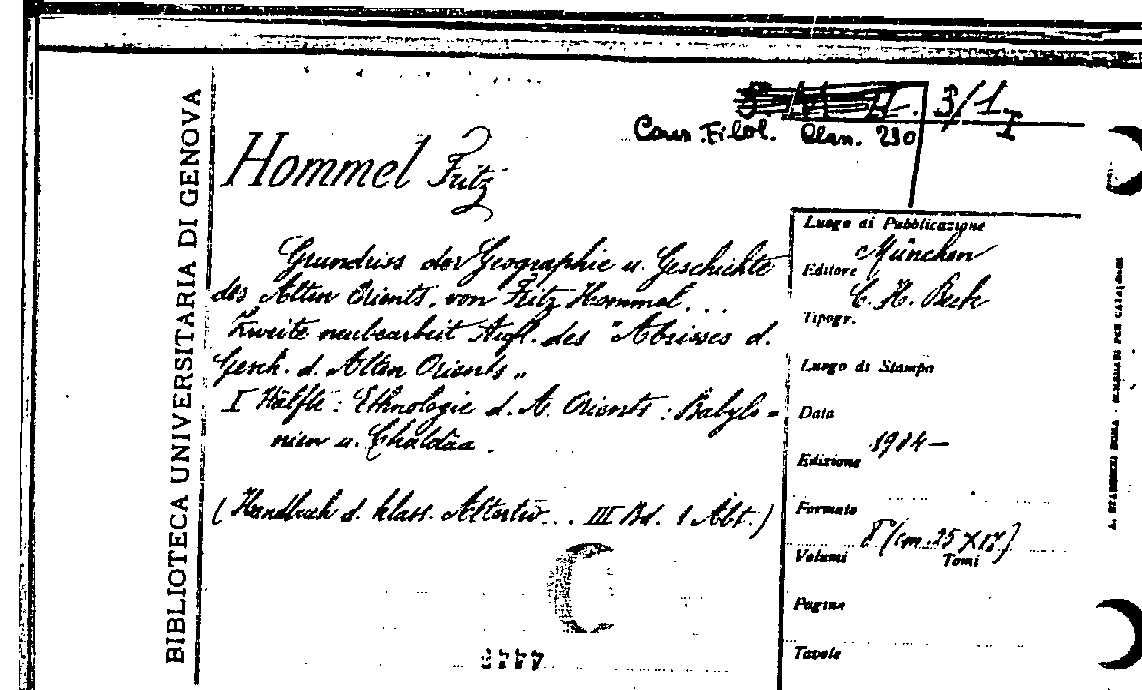 BIBLIOTECA UNIVERSITARIA DI GENOVA
3/1
Cons. Filol. Clan. 230
Hommel Fritz
Grundriss der Geographie u. Geschichte
des Alten Orients, von Fritz Hommel...
Zweite neubearbeit Aufl. des "Abrisses d.
Gesch. d. Alten Orients„
I Hälfte: Ethnologie d. A. Orients: Babylo=
nien u. Chaldäa.
(Handbuch d. klass. Altertw... III Bd. 1 Abt.)
Luogo di Pubblicazione
München
Editore
C. H. Beck
Tipogr.
Luogo di Stampa
Data
1904-
Edizione
Formato
8° (cm. 25 X 17)
Volumi Tomi
Pagine
Tavole